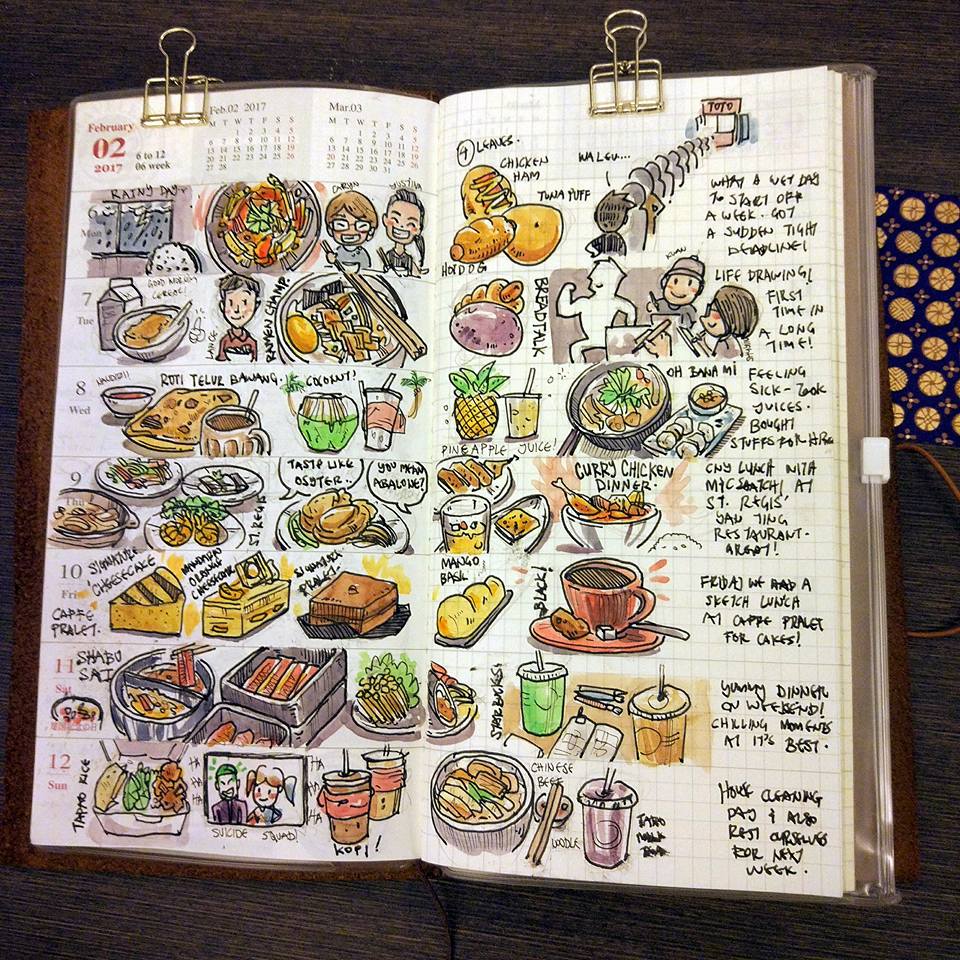 February
02
2017
6 to 12
06 week
Feb.02 2017
M T W T F S S
1 2 3 4 5
6 7 8 9 10 11 12
13 14 15 16 17 18 19
20 21 22 23 24 25 26
27 28
Mar.03
M T W T F S S
1 2 3 4 5
6 7 8 9 10 11 12
13 14 15 16 17 18 19
20 21 22 23 24 25 26
27 28 29 30 31
6
Mon
RAINY DAY.
CARYN
4 LEAVES.
CHICKEN
HAM
TUNA PUFF
HOTDOG
WALEU...
TOTO
WHAT A WET DAY
TO START OFF
A WEEK. GOT
A SUDDEN TIGHT
DEADLINE!
7
Tue
GOOD MORNING
CEREAL!
LANCE
RAMEN CHAMP.
BREADTALK
LIFE DRAWING!
FIRST
TIME IN
A LONG
TIME!
8
Wed
ROTI TELUR BAWANG.
COCONUT!
PINEAPPLE JUICE!
OH BANH MI
FEELING
SICK - TOOK
JUICES.
BOUGHT
STUFFS FOR
9
Thu
ST. REGIS
TASTE LIKE
OSYTER..
YOU MEAN
ABALONE?
CURRY CHICKEN
DINNER.
CNY LUNCH WITH
AT
ST. REGIS'
YAN TING
RESTAURANT.
10
Fri
SIGNATURE
CHEESECAKE
CAFFE
PRALET.
MANDARIN
ORANGE
CHEESECAKE
SIGNATURE
PRALET.
MANGO
BLACK!
FRIDAY WE HAD A
SKETCH LUNCH
AT CAFFE PRALET
FOR CAKES!
11
Sat
SHABU
SAI
STARBUCKS!
YUMMY DINNER
ON WEEKEND!
CHILLING MOMENTS
AT IT'S BEST.
12
Sun
RICE
HA
HA
HA
HA
HA
HA
SUICIDE SQUAD!
KOPI!
CHINESE
BEEF
NOODLE
TARO
MILK
TEA
HOUSE CLEANING
DAY & ALSO
REST OURSELVES
FOR NEXT
WEEK.